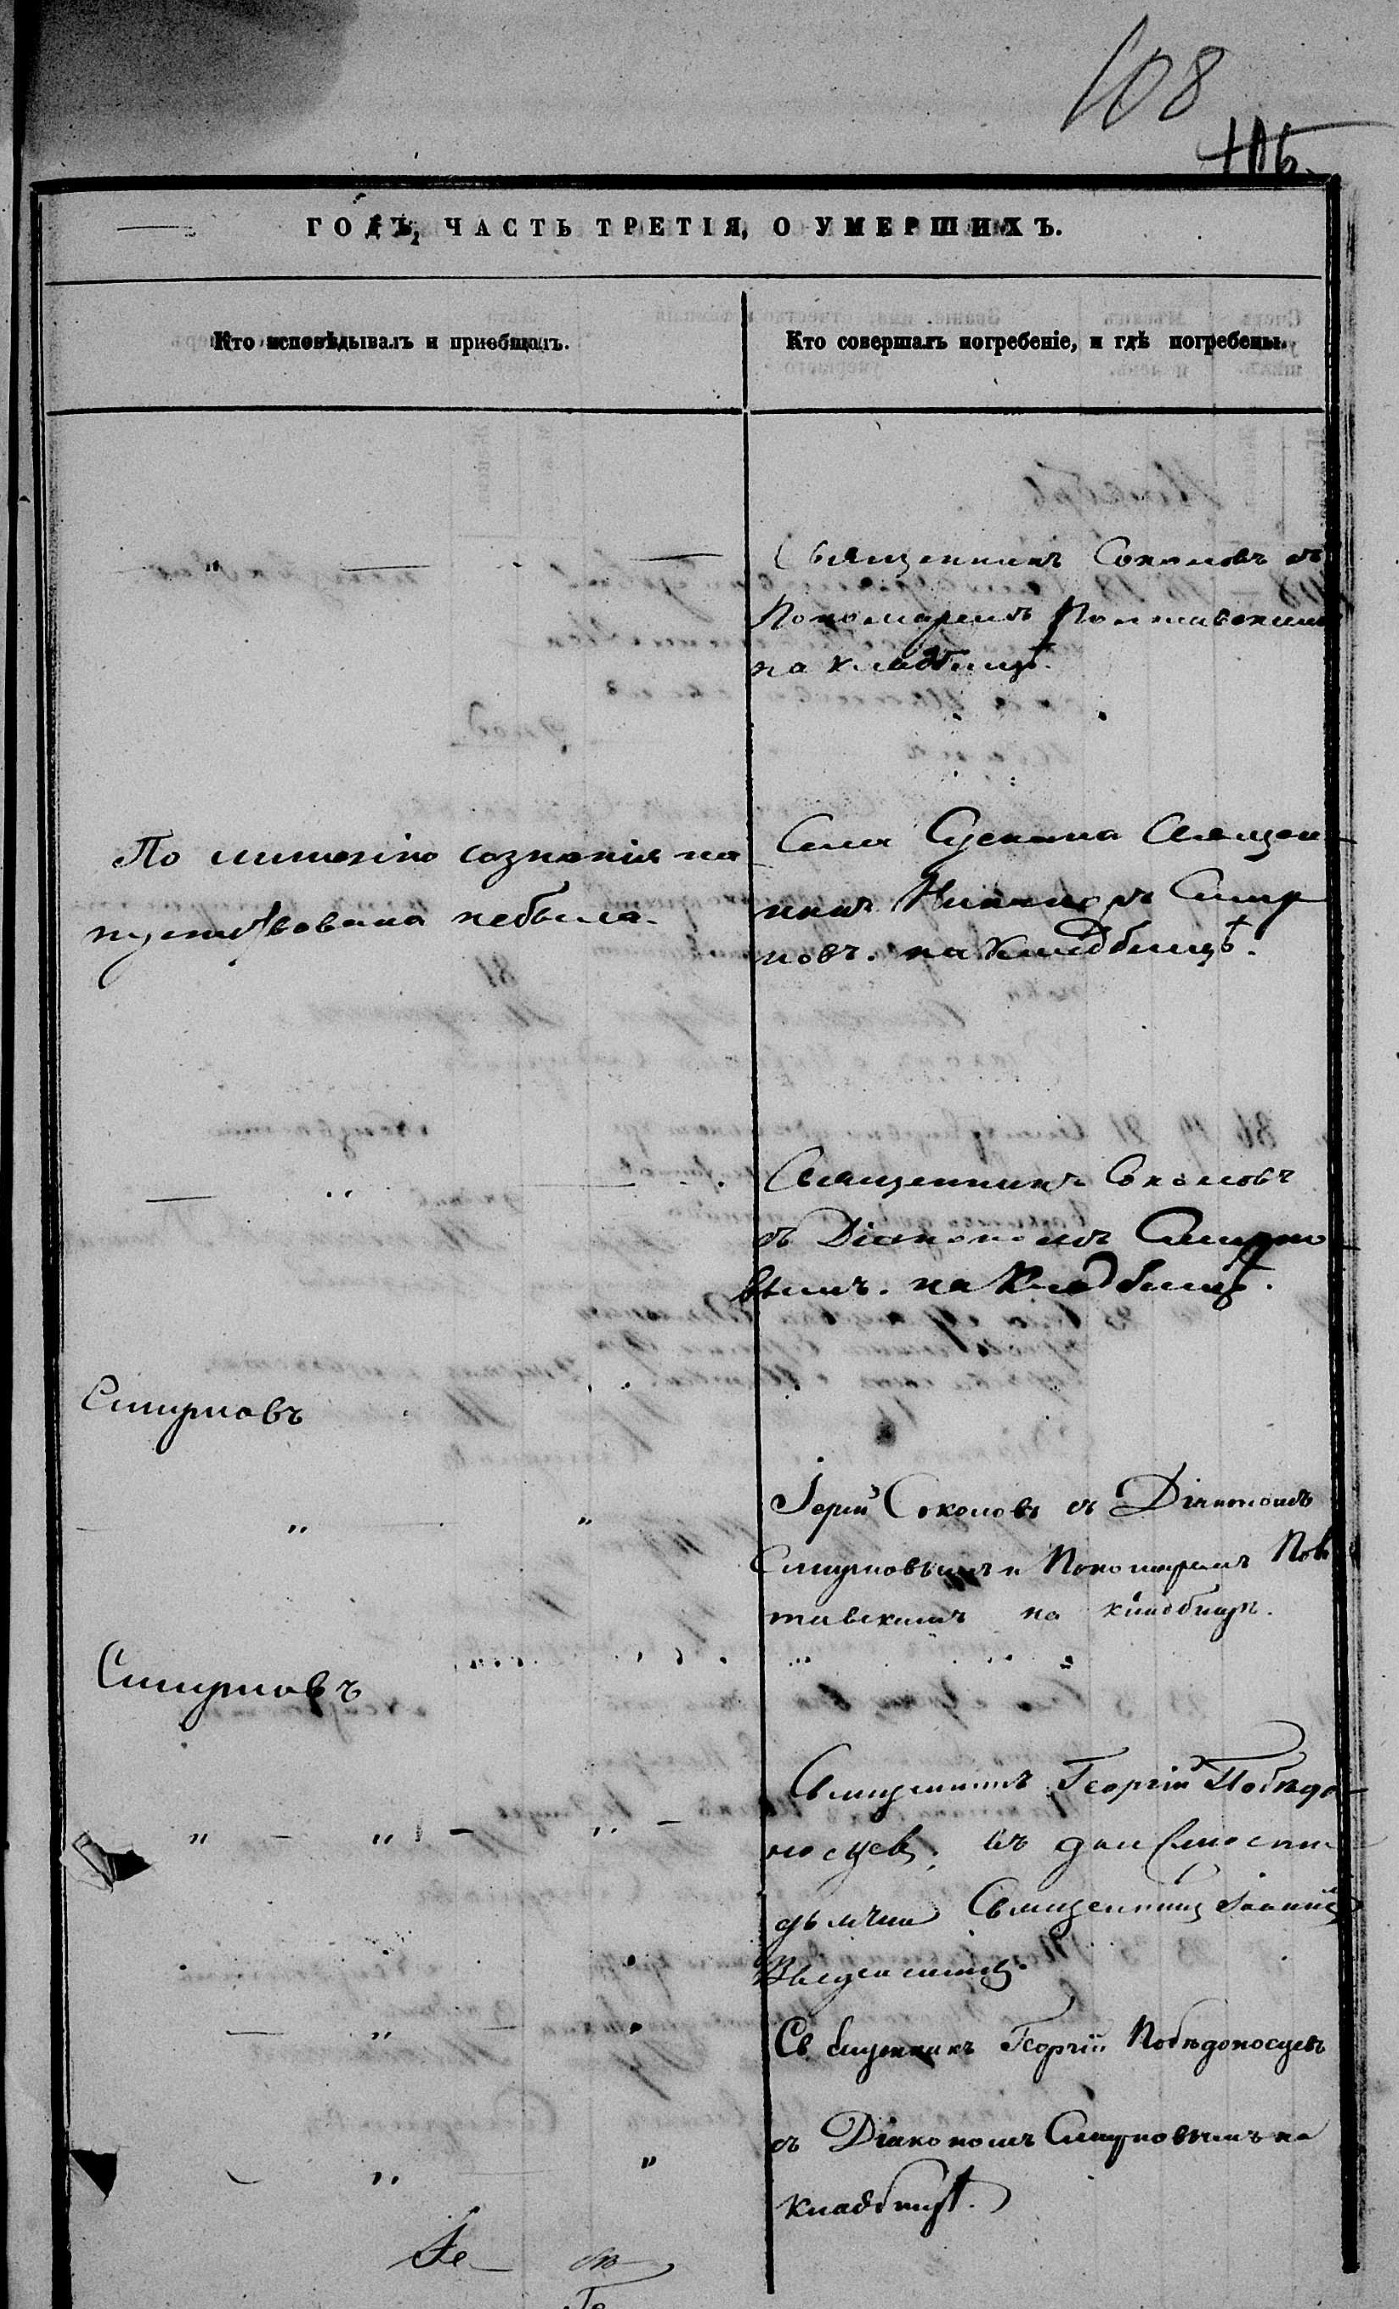 108
106
ГОДЪ, ЧАСТЬ ТРЕТІЯ, О УМЕРШИХЪ.
Кто исповѣдывалъ и приобщалъ.
Кто совершалъ погребеніе, и гдѣ погребены.
Священникъ Соколовъ съ
Пономаремъ Полтавскимъ
на кладбищѣ.
По лишенію сознанія на
путствована небыла.
Села Священ
никъ Никаноръ Смир
новъ. на Кладбищѣ.
Священникъ Соколовъ
съ Діакономъ Смирно
вымъ. на Кладбищѣ.
Смирновъ
Іерей Соколовъ съ Діакономъ
Смирновымъ и Пономаремъ Пол
тавскимъ на кладбищѣ.
Смирновъ
Священникъ Георгій Побѣдо
носцев.
Священникъ
Священникъ Георгій Побѣдоносцевъ
съ Діакономъ Смирновымъ на
кладбищѣ.
Іе